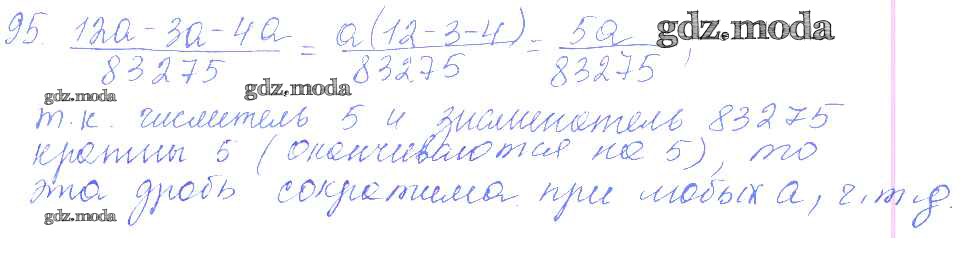 95. (12a - 3a - 4a)/83275 = a(12-3-4)/83275 = 5a/83275, gdz.moda
gdz.moda gdz.moda
т.к. числитель 5 и знаменатель 83275
кратны 5 (оканчиваются на 5), то
эта дробь сократима при любых a, ч.т.д.
gdz.moda